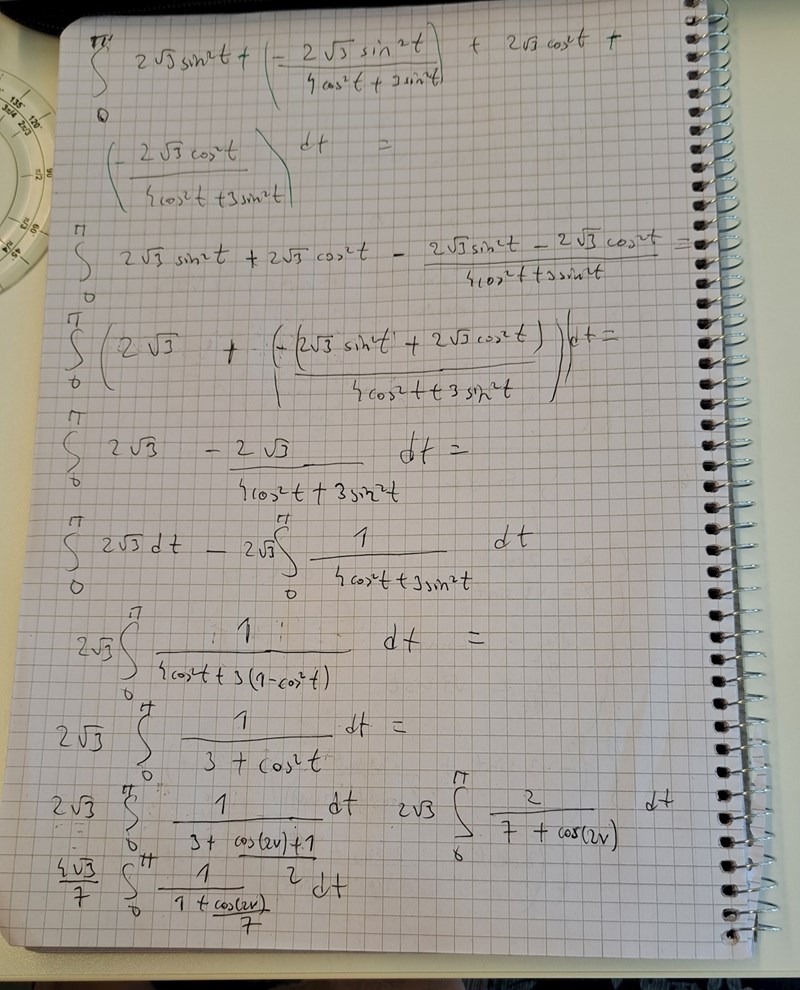 ∫₀^π 2√3 sin²t + (- 2√3 sin²t / 4cos²t + 3sin²t) + 2√3 cos²t +
(- 2√3 cos²t / 4cos²t + 3sin²t) dt =
∫₀^π 2√3 sin²t + 2√3 cos²t - 2√3 sin²t - 2√3 cos²t / 4cos²t + 3sin²t =
∫₀^π (2√3 + (-(2√3 sin²t + 2√3 cos²t) / 4cos²t + 3sin²t)) dt =
∫₀^π 2√3 - 2√3 / 4cos²t + 3sin²t dt =
∫₀^π 2√3 dt - 2√3 ∫₀^π 1 / 4cos²t + 3sin²t dt
2√3 ∫₀^π 1 / 4cos²t + 3(1-cos²t) dt =
2√3 ∫₀^π 1 / 3 + cos²t dt =
2√3 ∫₀^π 1 / 3 + cos(2v)+1 / 2 dt 2√3 ∫₀^π 2 / 7 + cos(2v) dt
4√3/7 ∫₀^π 1 / 1 + cos(2v)/7 dt
135° 120°
3π/4 2π/3
90
π/2
60
π/3
45